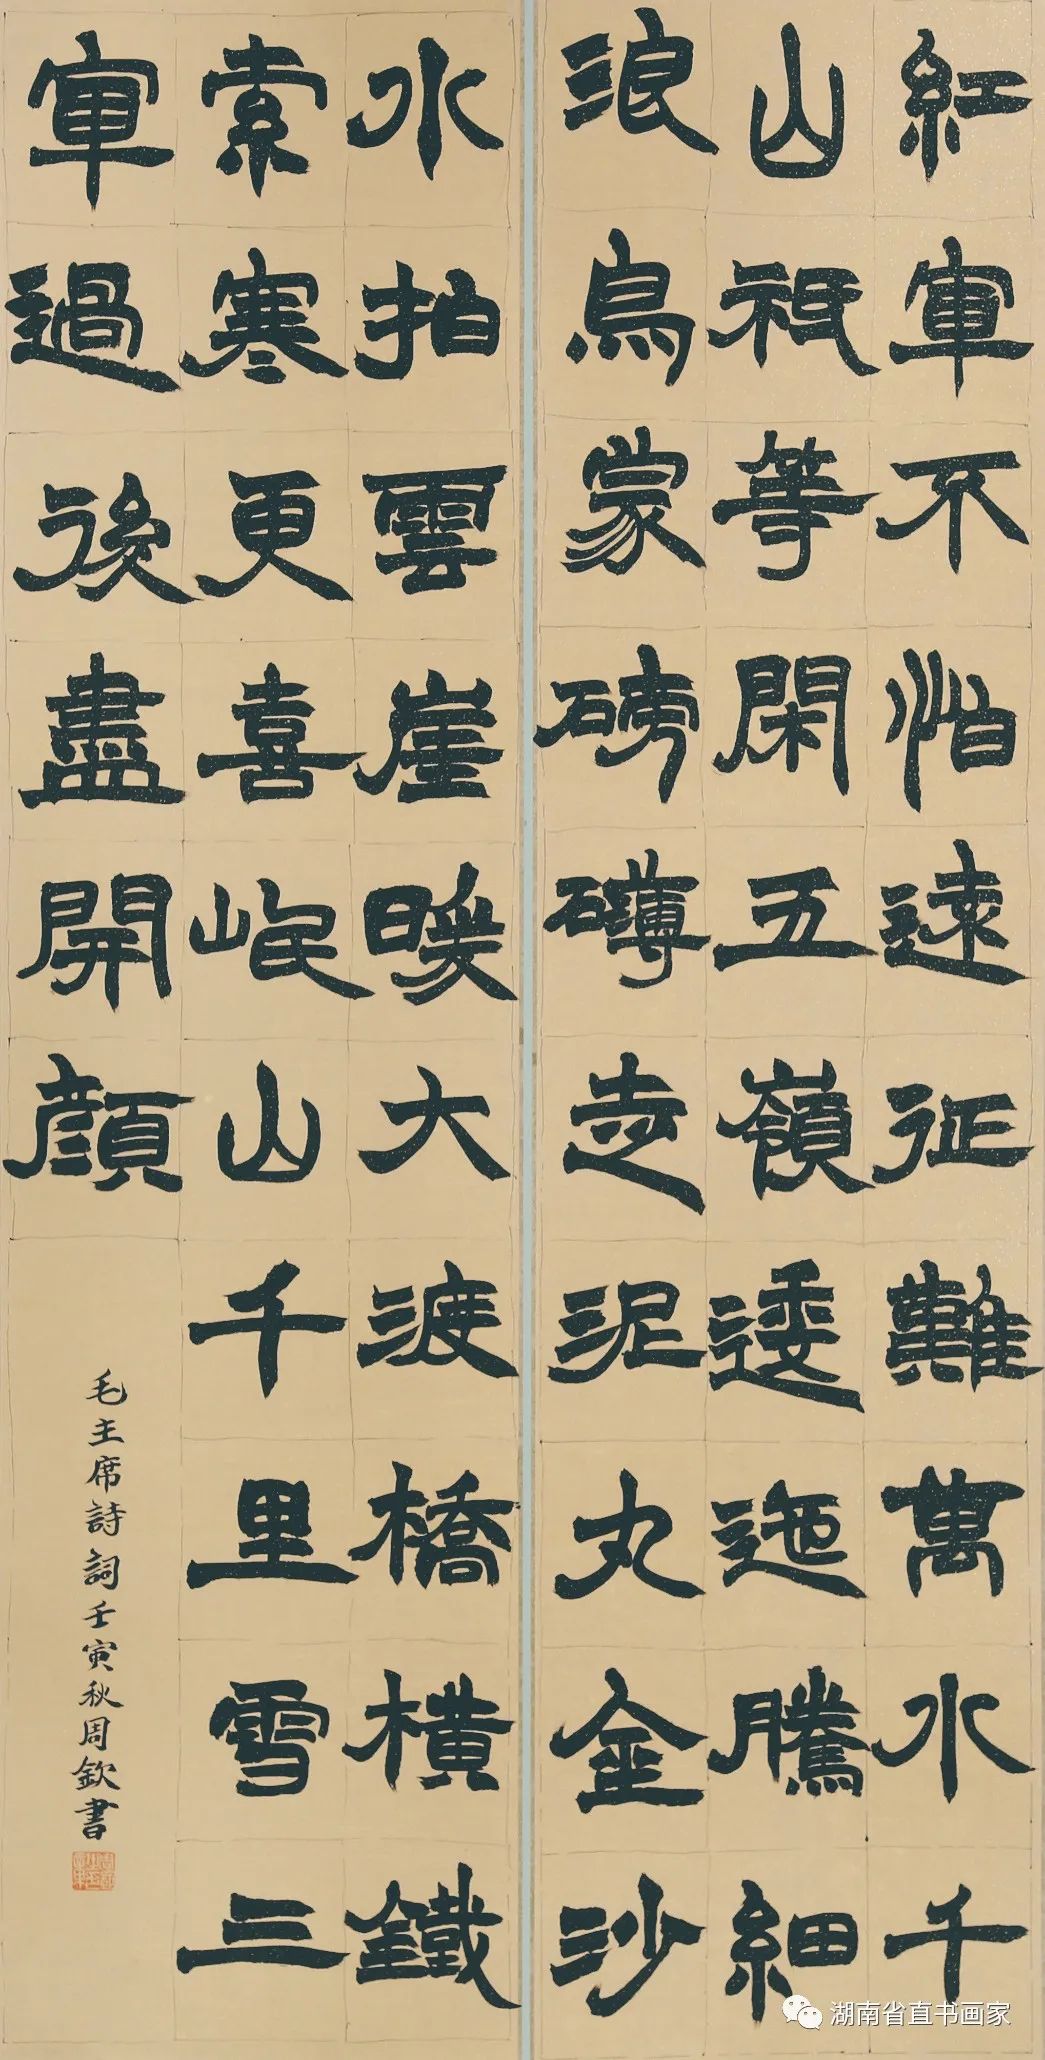 紅軍不怕遠征難萬水千
山祇等閑五嶺逶迤騰細
浪烏蒙磅礴走泥丸金沙
水拍雲崖暖大渡橋橫鐵
索寒更喜岷山千里雪三
軍過後盡開顏
毛主席詩詞壬寅秋周欽書
湖南省直书画家